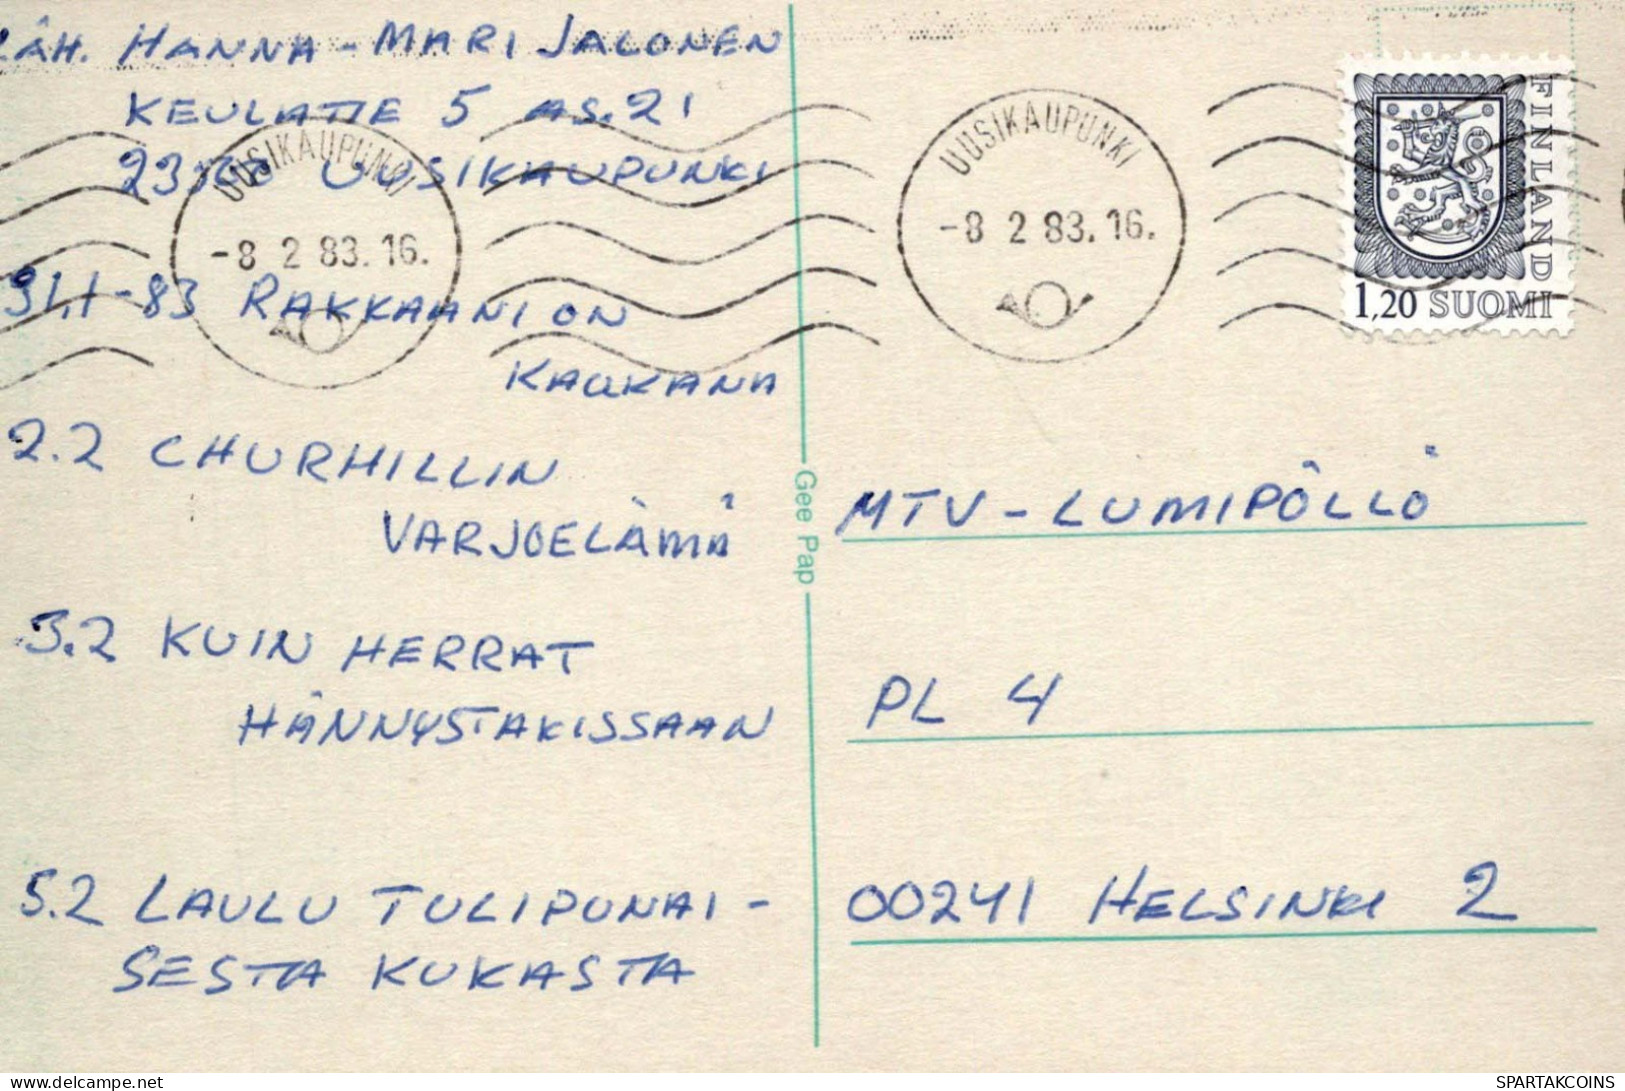 LÄH. HANNA-MARI JALONEN
KEULATIE 5 AS.21
23100 UUSIKAUPUNKI
31.1-83 RAKKAANI ON
KAUKANA
2.2 CHURHILLIN
VARJOELÄMÄ
3.2 KUIN HERRAT
HÄNNYSTAKISSAAN
5.2 LAULU TULIPUNAI-
SESTA KUKASTA
UUSIKAUPUNKI
-8 2 83.16.
Gee Pap
UUSIKAUPUNKI
-8 2 83.16.
FINLAND
1,20 SUOMI
MTV-LUMIPÖLLÖ
PL 4
00241 HELSINKI 2
https://www.delcampe.net
SPARTAKCOINS